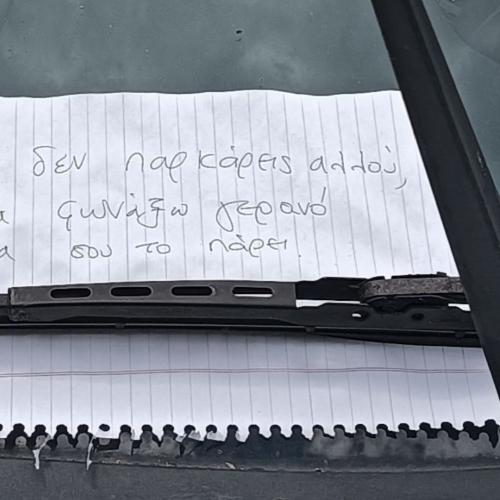 δεν παρκάρεις αλλού,
φωνάξω γερανό
σου το πάρει.